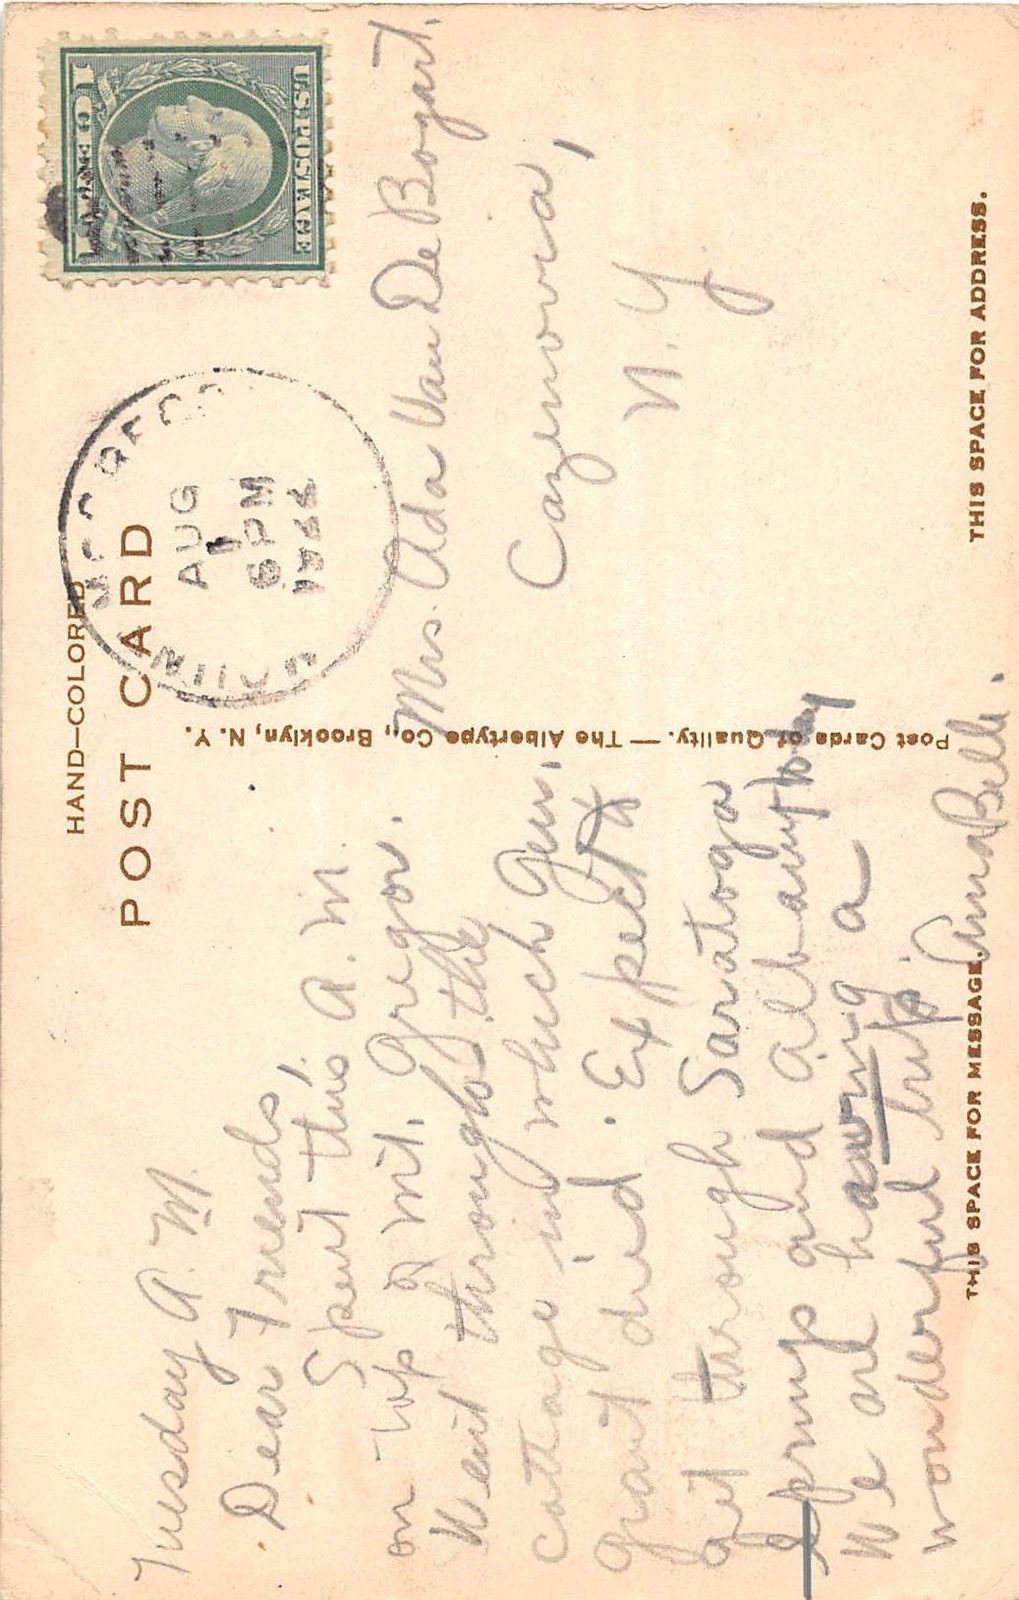 HAND—COLORED
POST CARD
Tuesday A. M.
Dear Friends,
Spent this A. M.
on top of Mt. Gregor.
Went through the
cottage in which Gen.
Grant died. Expect to
get through Saratoga
Springs and Albany today
We are having a
wonderful trip. AnnaBelle.
THIS SPACE FOR MESSAGE.
Post Cards of Quality. — The Albertype Co., Brooklyn, N. Y.
U.S. POSTAGE
AUG
1
6 PM
Mrs. Ada Van De Bogart.
Cazenovia,
N. Y
THIS SPACE FOR ADDRESS.